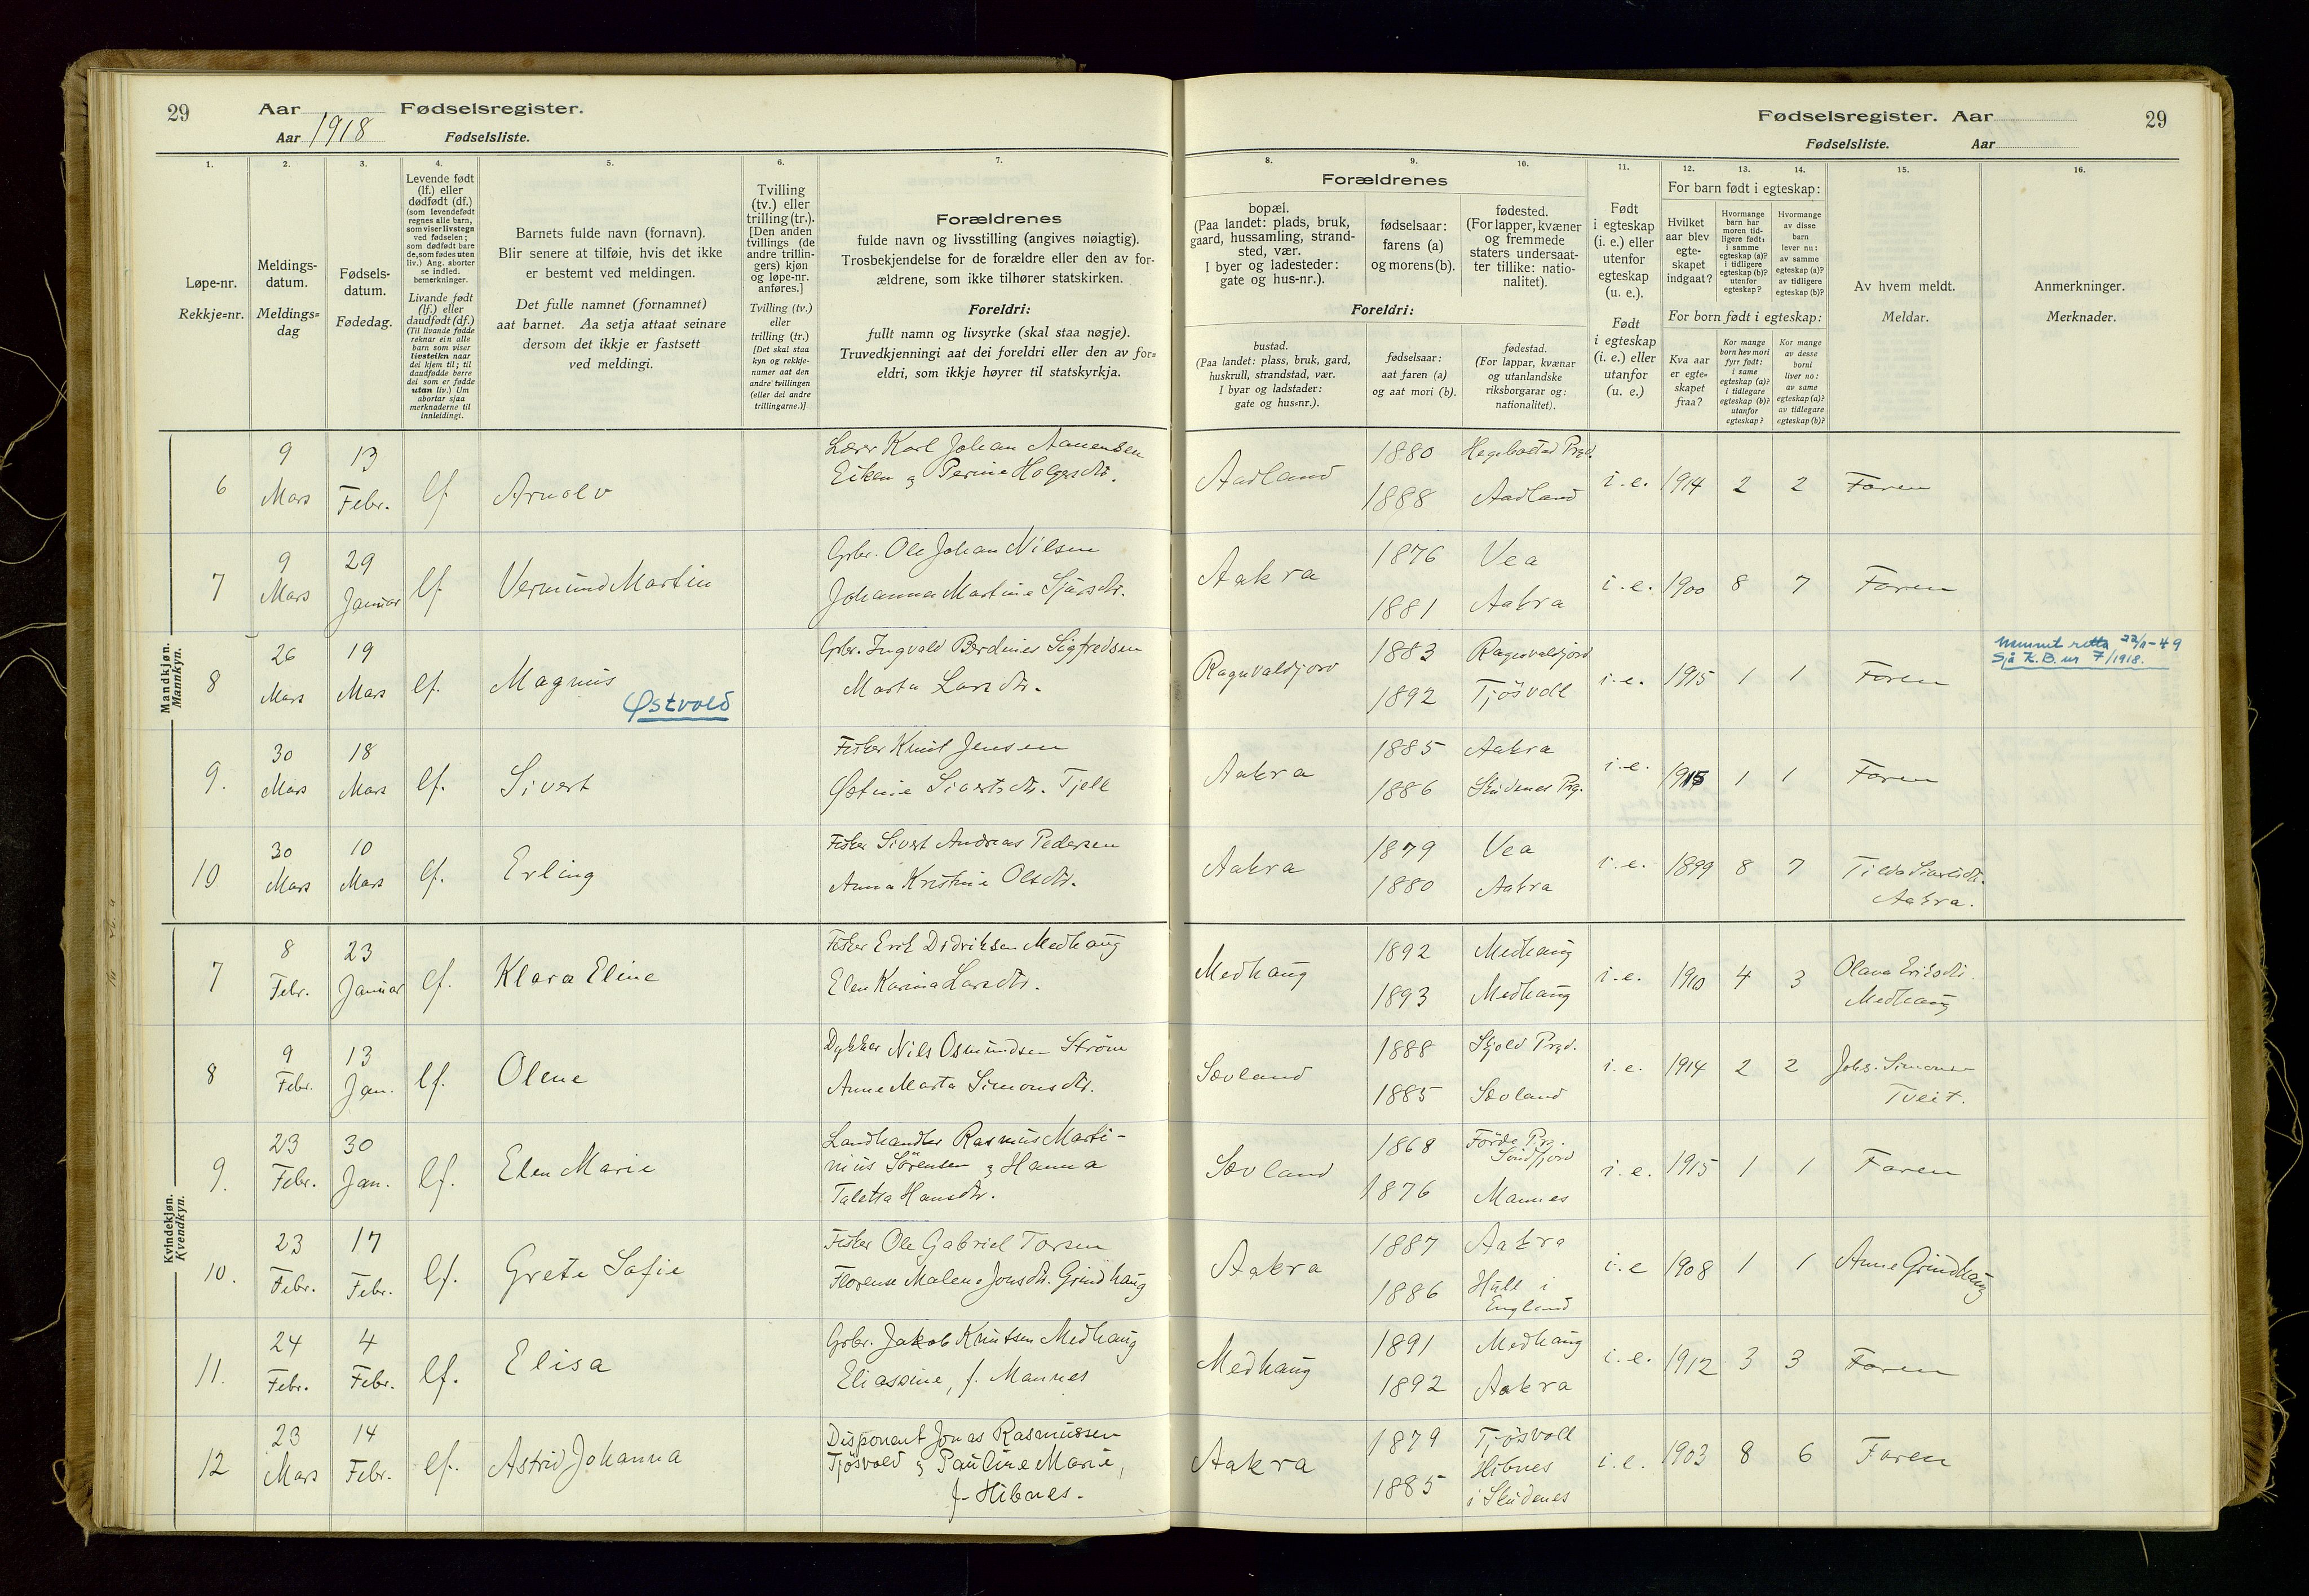 29
Aar Fødselsregister.
Aar 1918 Fødselsliste.
Fødselsregister. Aar
29
Fødselsliste. Aar
1.
Løpe-nr.
Rekkje=nr.
2.
Meldings-
datum.
Meldings=
dag
3.
Fødsels-
datum.
Fødedag.
4.
Levende født
(lf.) eller
dødfødt (df.)
(som levendefødt
regnes alle barn,
som viser livstegn
ved fødselen;
som dødfødt bare
de, som fødes uten
liv.) Ang. aborter
se indled.
bemerkninger.
Livande født
(lf.) eller
daudfødt (df.)
(Til livande fødde
reknar ein alle
barn som viser
livsteikn naar
dei kjem til; til
daudfødde berre
dei som er fødde
utan liv.) Um
abortar sjaa
merknaderne til
innleidingi.
5.
Barnets fulde navn (fornavn).
Blir senere at tilføie, hvis det ikke
er bestemt ved meldingen.
Det fulle namnet (fornamnet)
aat barnet. Aa setja attaat seinare
dersom det ikkje er fastsett
ved meldingi.
6.
Tvilling
(tv.) eller
trilling (tr.).
[Den anden
tvillings (de
andre trillin-
gers) kjøn
og løpe-nr.
anføres.]
Tvilling (tv.)
eller
trilling (tr.)
[Det skal staa
kyn og rekkje-
numer aat den
andre tvillingen
(eller dei andre
trillingarne.)]
7.
Forældrenes
fulde navn og livsstilling (angives nøiagtig).
Trosbekjendelse for de forældre eller den av for-
ældrene, som ikke tilhører statskirken.
Foreldri:
fullt namn og livsyrke (skal staa nøgje).
Truvedkjenningi aat dei foreldri eller den av for=
eldri, som ikkje høyrer til statskyrkja.
8.
9.
10.
Forældrenes
bopæl.
(Paa landet: plads, bruk,
gaard, hussamling, strand-
sted, vær.
I byer og ladesteder:
gate og hus-nr.).
fødselsaar:
farens (a)
og morens (b).
fødested.
(For lapper, kvæner
og fremmede
staters undersaat-
ter tillike: natio-
nalitet).
Foreldri:
bustad.
(Paa landet: plass, bruk, gard,
huskrull, strandstad, vær.
I byar og ladstader:
gate og hus=nr.).
fødselsaar:
aat faren (a)
og aat mori (b).
fødestad.
(For lappar, kvænar
og utanlandske
riksborgarar og:
nationalitet).
11.
Født
i egteskap
(i. e.) eller
utenfor
egteskap
(u. e.).
Født
i egteskap
(i. e.) eller
utanfor
(u. e.)
12.
13.
14.
For barn født i egteskap:
Hvilket
aar blev
egte-
skapet
indgaat?
Hvormange
barn har
moren tid-
ligere født:
i samme
egteskap (a)?
i tidligere
egteskap (b)?
utenfor
egteskap?
Hvormange
av disse
barn
lever nu:
av samme
egteskap (a)?
av tidligere
egteskap (b)?
For born født i egteskap:
Kva aar
er egte=
skapet
fraa?
Kor mange
born hev mori
fyrr født:
i same
egteskap (a)?
i tidlegare
egteskap (b)?
utanfor
egteskap?
Kor mange
av desse
borni
liver no:
av same
egteskap (a)?
av tidlegare
egteskap (b)?
15.
Av hvem meldt.
Meldar.
16.
Anmerkninger.
Merknader.
Mandkjøn.
Mannkyn.
6
9
Mars
13
Febr.
lf
Arnolv
Lærer Karl Johan Aanensen
Eiken & Perine Holgersdtr.
Aadland
1880
1888
Hegebostad Prgd.
Aadland
i. e. 1914 2 2 Faren
7
9
Mars
29
Januar
lf.
Vermund Martin
Gbr. Ole Johan Nilsen
Johanna Martine Sjursdtr.
Aakra
1876
1881
Vea
Aakra
i. e. 1900 8 7 Faren
8
26
Mars
19
Mars
lf.
Magnus
Østvold
Gbr. Ingvald Berdines Sigfredsen
Marta Larsdtr.
Ragnvaldjord
1883
1892
Ragnvaldjord
Tjøsvoll
i. e. 1915 1 1 Faren
Nammet retta 22/11-49
Sjå K.B. nr 7/1918.
9.
30
Mars
18
Mars
lf.
Sivert
Fisker Knut Jensen
Østine Sivertsdtr. Tjell
Aakra
1885
1886
Aakra
Skudenes Prg.
i. e. 1915 1 1 Faren
10
30
Mars
10
Mars
lf.
Erling
Fisker Sivert Andreas Pedersen
Anna Kristine Olsdtr.
Aakra
1879
1880
Vea
Aakra
i. e. 1899 8 7
Aakra.
Kvindekjøn.
Kvendkyn.
7
8
Febr.
23
Januar
lf.
Klara Eline
Fisker Erik Didriksen Medhaug
Elen Karina Larsdtr.
Medhaug
1892
1893
Medhaug
Medhaug
i. e. 1910 4 3
Olava Eriksdtr.
Medhaug
8
9
Febr.
13
Jan.
lf.
Olene
Dykker Nils Osmundsen Strøm
Anne Marta Simonsdtr.
Sævland
1888
1885
Skjold Prgd.
Sævland
i. e. 1914 2 2
Johs. Simonsen
Tveit.
9.
23
Febr.
30
Jan.
lf.
Elen Marie
Landhandler Rasmus Marti-
nius Sørensen & Hanna
Taletta Hansdtr.
Sævland
1868
1876
Førde Prg.
Søndfjord
Mannes
i. e. 1915 1 1 Faren
10.
23
Febr.
17
Febr.
lf.
Grete Sofie
Fisker Ole Gabriel Torsen
Florense Malene Jonsdtr. Grindhaug
Aakra
1887
1886
Aakra
Hull i
England
i. e 1908 1 1 Anne Grindhaug
11.
24
Febr.
4
Febr.
lf.
Elisa
Gbr. Jakob Knutsen Medhaug
Eliassine, f. Mannes
Medhaug
1891
1892
Medhaug
Aakra
i. e. 1912 3 3 Faren
12
23
Mars
14
Febr.
lf.
Astrid Johanna
Disponent Jonas Rasmussen
Tjøsvold & Pauline Marie,
f. Hibnes.
Aakra
1879
1885
Tjøsvoll
Hibnes
i Skudenes
i. e. 1903 8 6 Faren